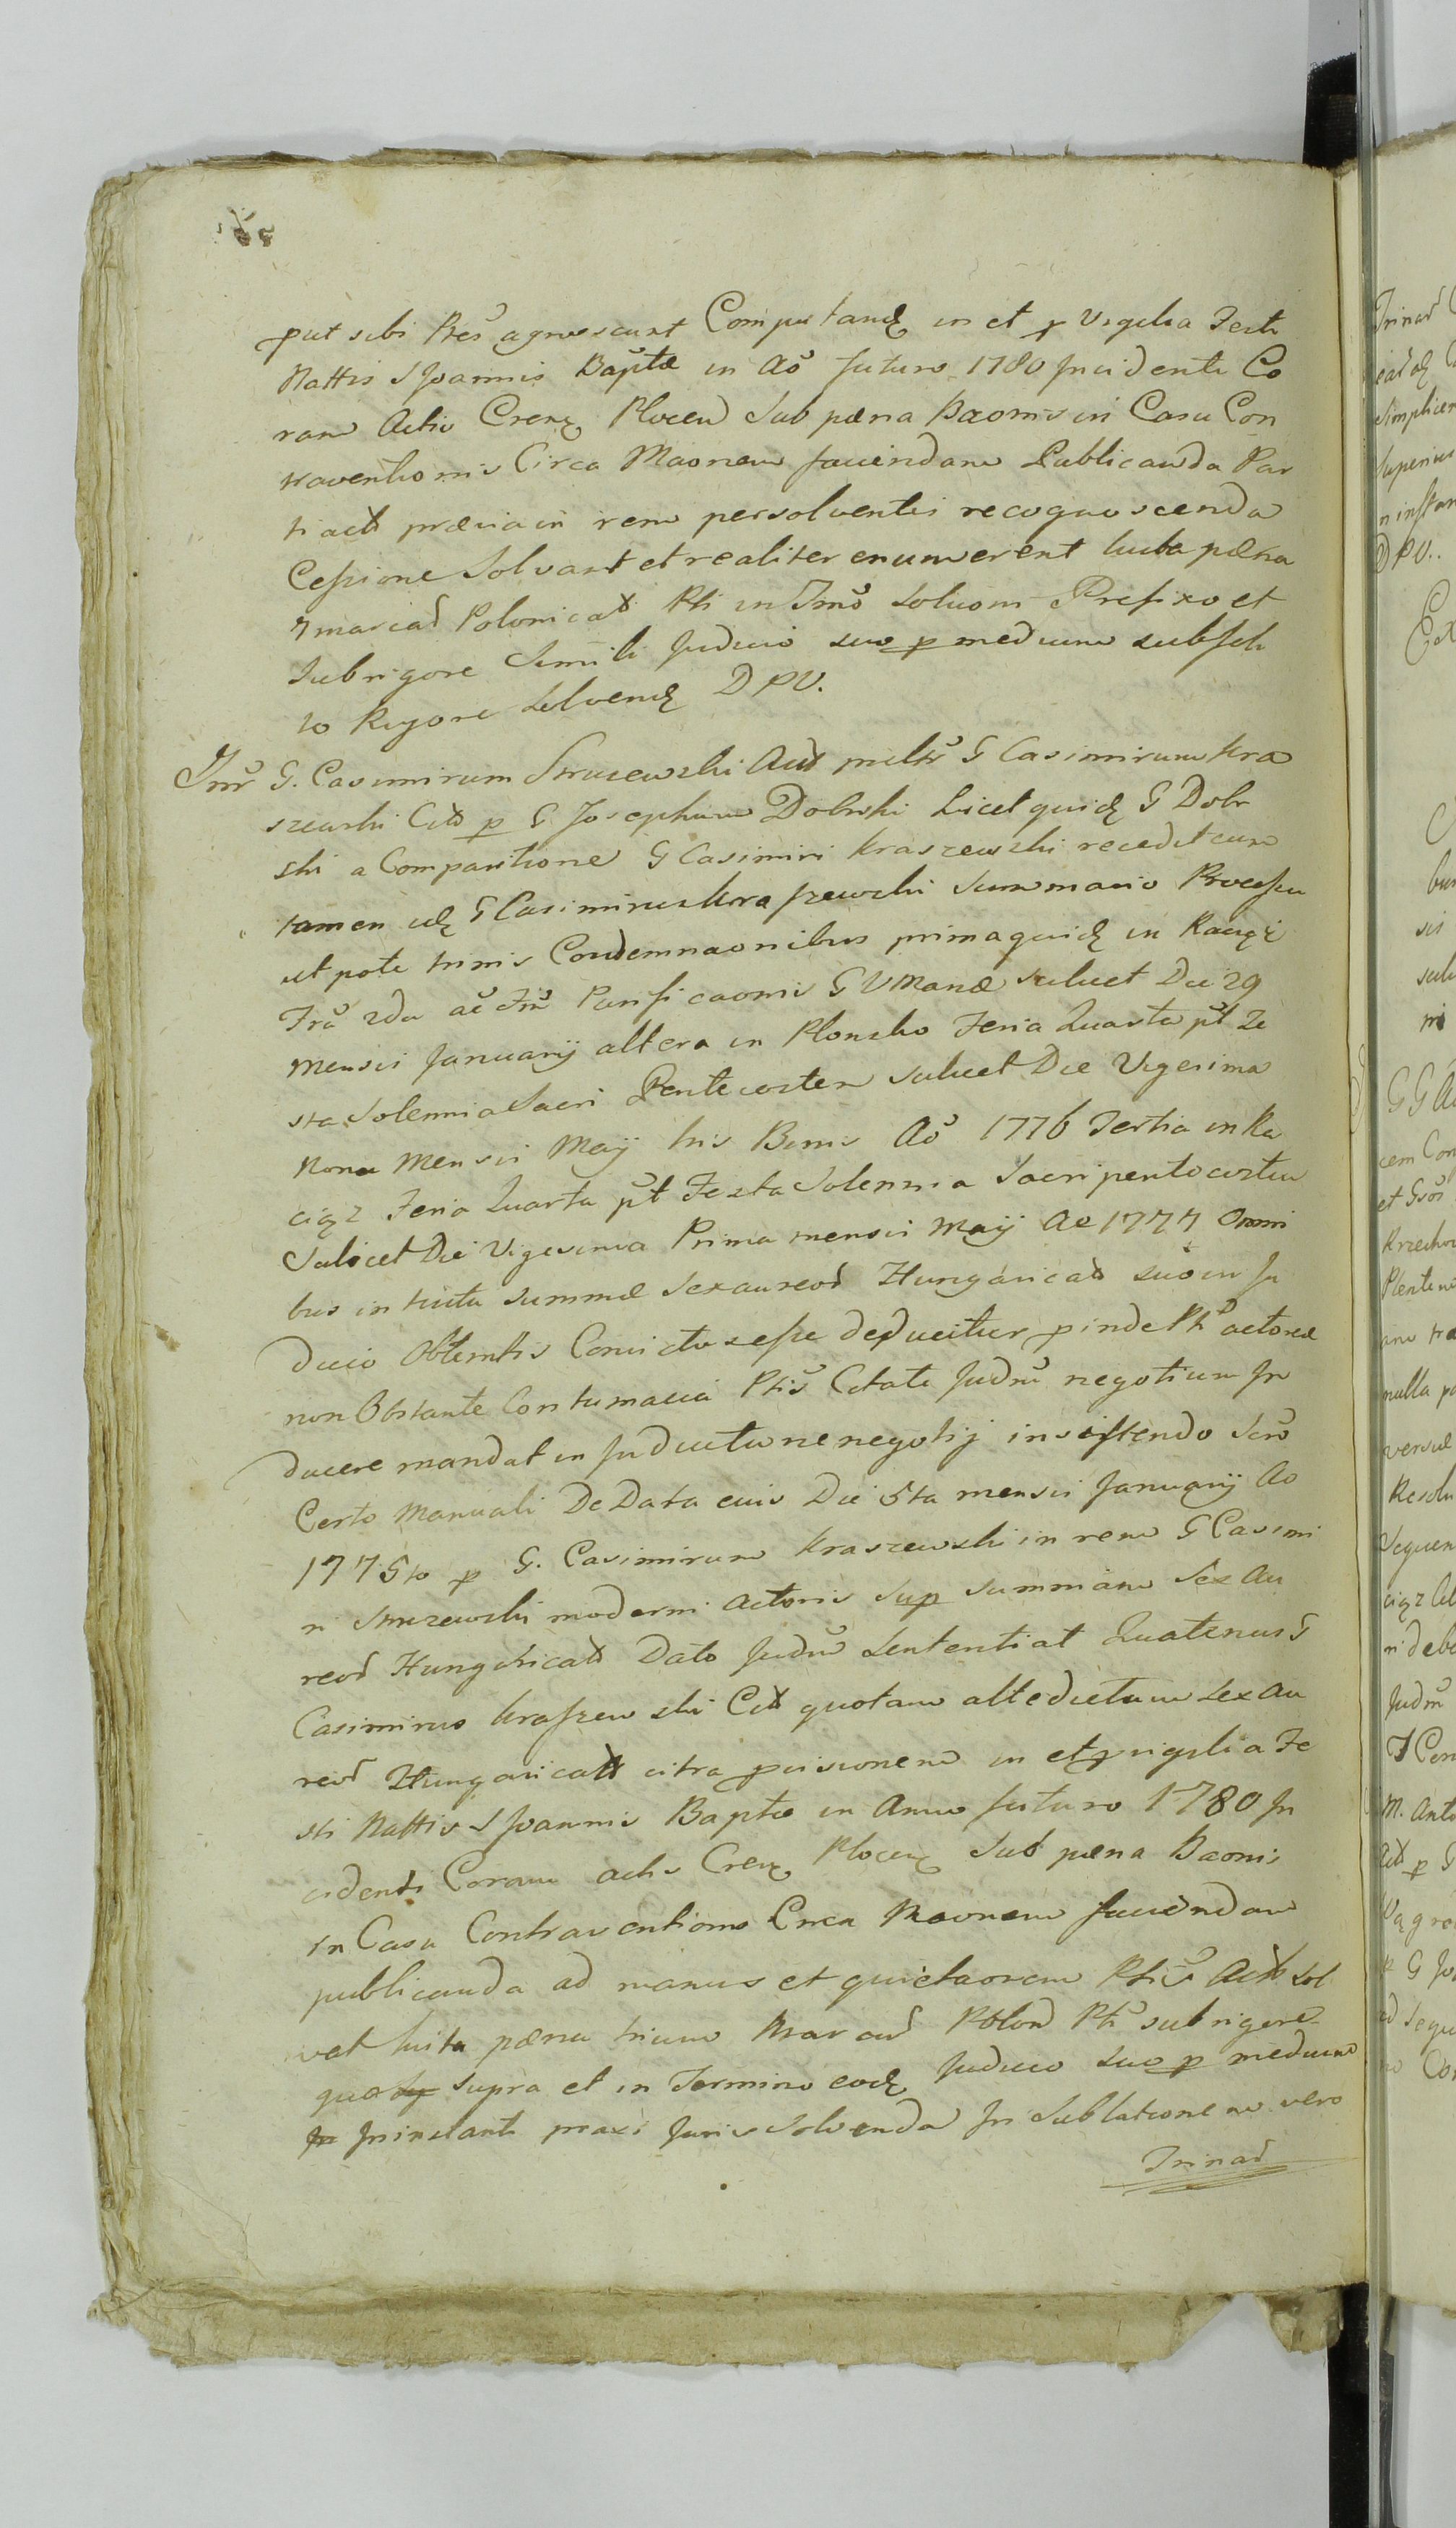 put sibi Ptes agnoscunt Computand in et p Vigilia Festi
Nattis S Joannis Baptæ in Aô futuro 1780 Incidenti Co
ram Actis Crens Plocen Sub pæna Baonis in Casu Con
traventionis Circa Maonem faciendam Publicanda Par
ti act prævia in rem persolventis recognoscenda
Cessione Solvant et realiter enumerent luita pæna
7 marcar Polonicał Pti in Tmô Soluoni Prefixo et
Sub rigore Simili Judicio suo p medium subsoli
to Rigore Solvend D P V.
Inr G. Casimirum Smuszewski Act prelte G Casimirum Kra
szewski Citt p G Josephum Dobrski Licet quid G Dobr
ski a Comparitione G Casimiri Kraszewski recedit cum
tamen id G Casimirus Kraszewski Summario Processu
ut pote trinis Condemnaonibus prima quid in Raciąż
Fra 2da Purificaonis G V Mariæ Scilicet Die 29
Mensis Januarij altera in Plonsko Feria Quarta pt Fe
sta Solennia Sacri Pentecosten Scilicet Die Vigesima
Nona Mensis Maij his Binis Aô 1776 Tertia in Ra
ciąz Feria Quarta pt Festa Solennia Sacri pentecosten
Scilicet Die Vigesima Prima mensis Maij Ao 1777 Omni
bus intuitu Summæ Sex aureor Hungaricał suo in Ju
dicio Obtentis Convictus esse deducitur pinde Pti actoreæ
non Obstante Contumacia Ptis Citatæ Judm negotium In
ducere mandat in Inductione negotij insistendo Scro
Certo Manuali De Data ejus Die 5ta mensis Januarij Ao
1775to p G. Casimirum Kraszewski in rem G Casimi
ri Smuszewski moderni Actoris sup Summam Sex Au
reor Hungaricał Dato Judm Sententiat Quatenus G
Casimirus Kraszewski Citt quotam altedictam Sex Au
reor Hungaricał citra pvisionem in et p vigilia Fe
sti Nattis S Joannis Baptæ in Anno futuro 1780 In
cidenti Coram actis Crens Plocens Sub pæna Baonis
in Casu Contraventionis Circa Maonem faciendam
publicanda ad manus et quietaonem Ptis Act Sol
vat luita pæna trium Marcar Polon Pti sub rigore
quo supra et in Termino eod Judicio suo p medium
In instanti praxi Juris Solvenda In Sublationem vero
Trinar